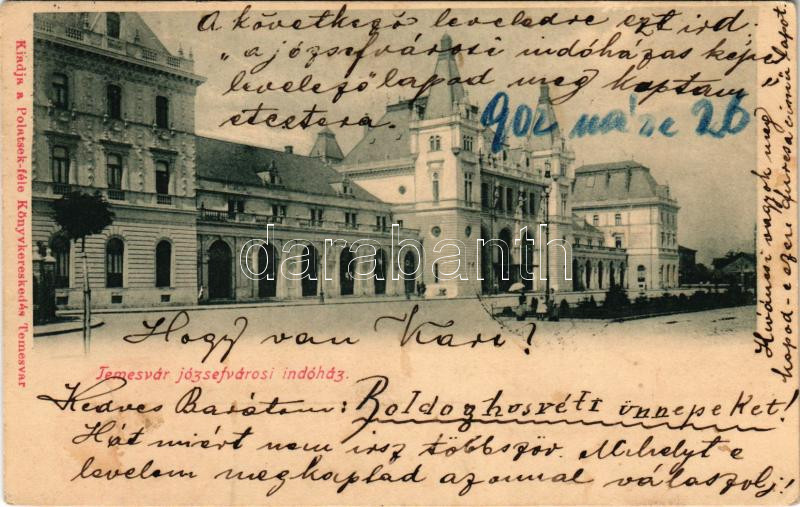 A következő leveledre ezt ird:
"a józsefvárosi indóházas képes
levelező lapod meg kaptam"
etcetera.
902 márc 26
Kiváncsi vagyok meg
kapod-e ezen furcsa cimü lapot.
Kiadja a Polatsek-féle Könyvkereskedés Temesvar
darabanth.com
Hogy van Kari?
Temesvár józsefvárosi indóház.
Kedves Barátom: Boldog husvéti ünnepeket!
Hát miért nem irsz többször. Mihelyt e
levelem megkaptad azonnal válaszolj!